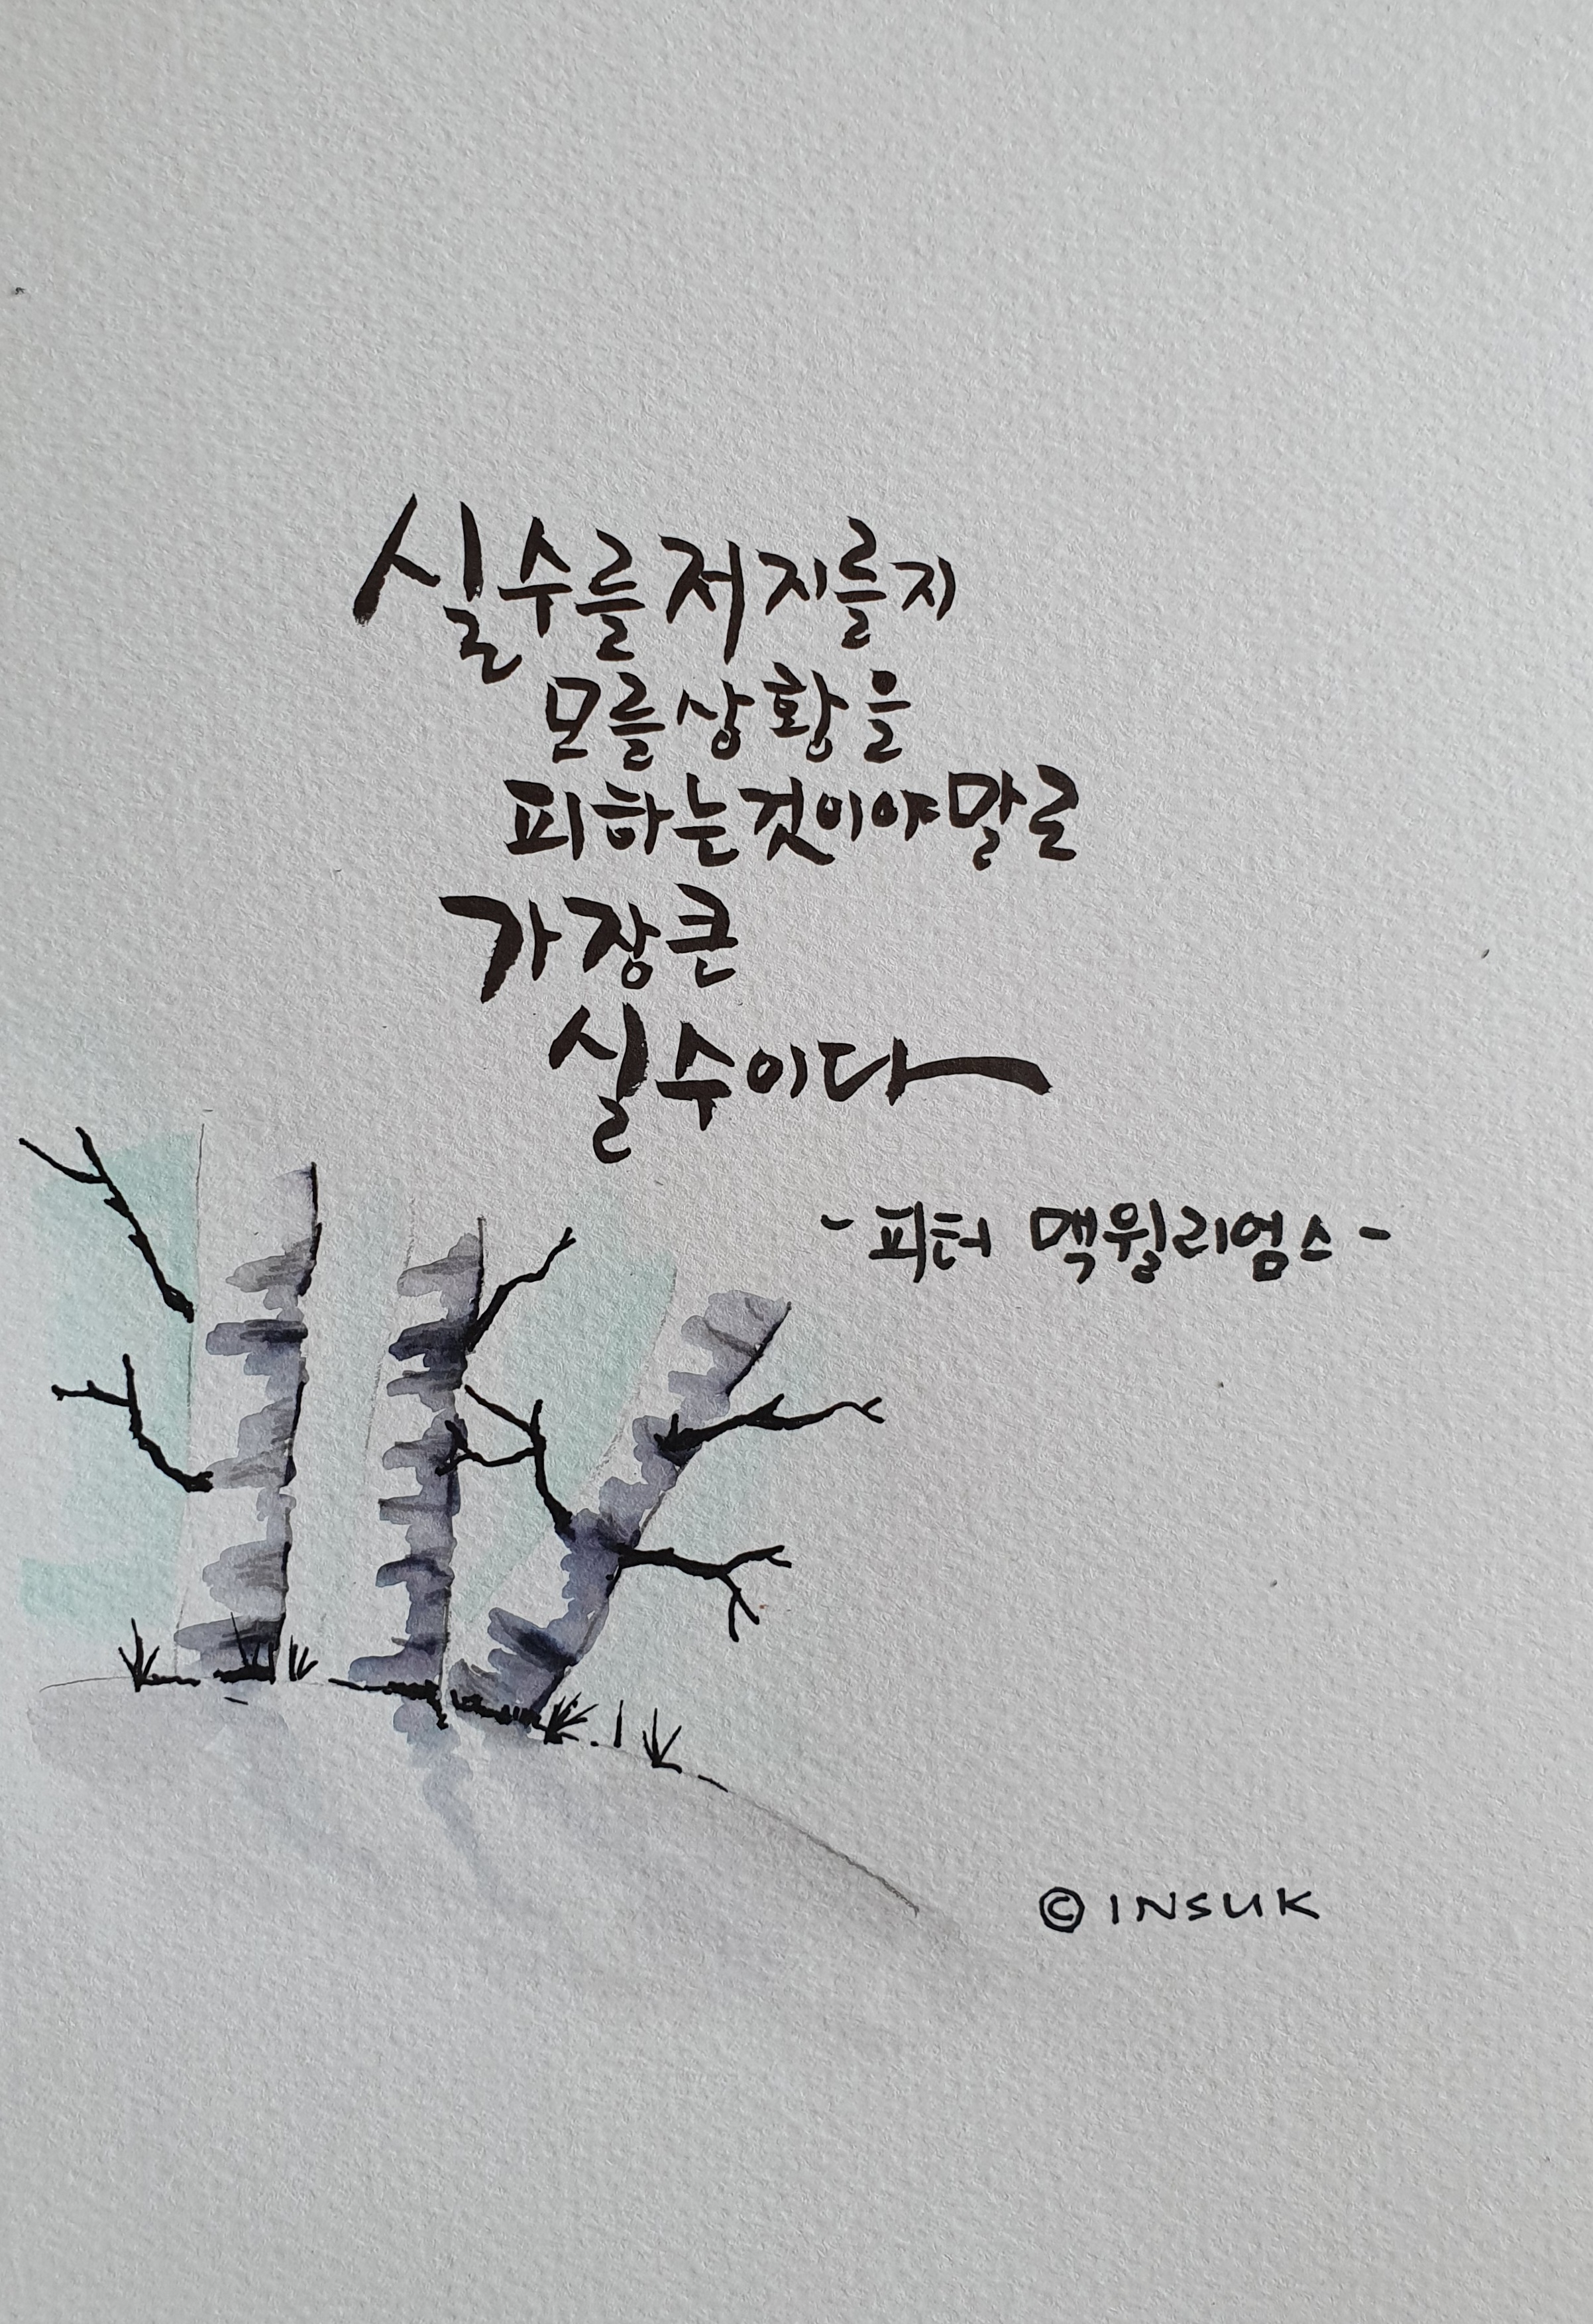 실수를 저지를지
모를 상황을
피하는 것이야말로
가장 큰
실수이다
- 피터 맥윌리엄스 -
© INSUK